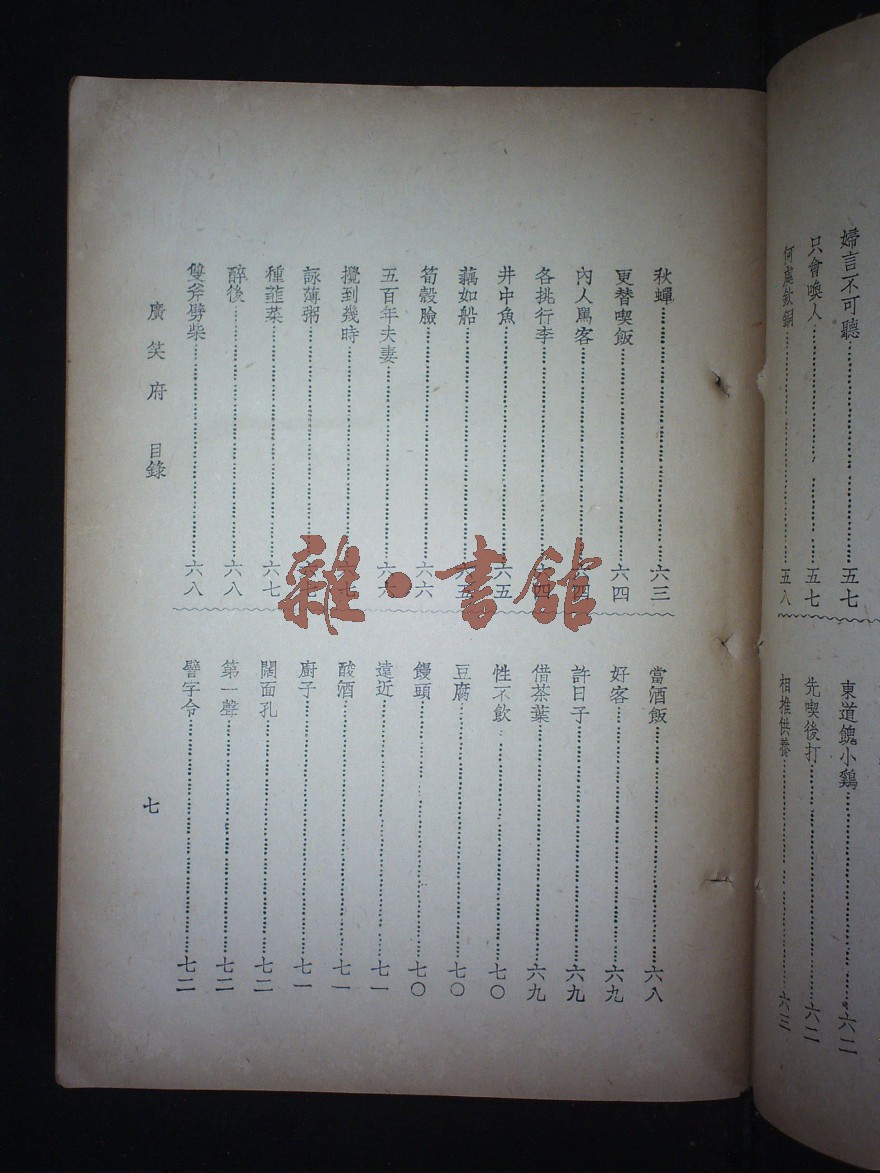 婦言不可聽……五七
只會喚人……五七
五八
東道餽小鷄……六二
先喫後打……六二
相推供養……六三
秋蟬……六三
更替喫飯……六四
內人罵客……六四
各挑行李……六四
井中魚……六五
藕如船……六五
筍殼臉……六六
五百年夫妻……六六
攪到幾時……六七
詠薄粥……六七
種韮菜……六七
醉後……六八
雙斧劈柴……六八
當酒飯……六八
好客……六九
許日子……六九
借茶葉……六九
性不飲……七〇
豆腐……七〇
饅頭……七〇
遠近……七一
酸酒……七一
廚子……七一
闊面孔……七二
第一聲……七二
譬字令……七二
廣笑府 目錄
七
雜·書館